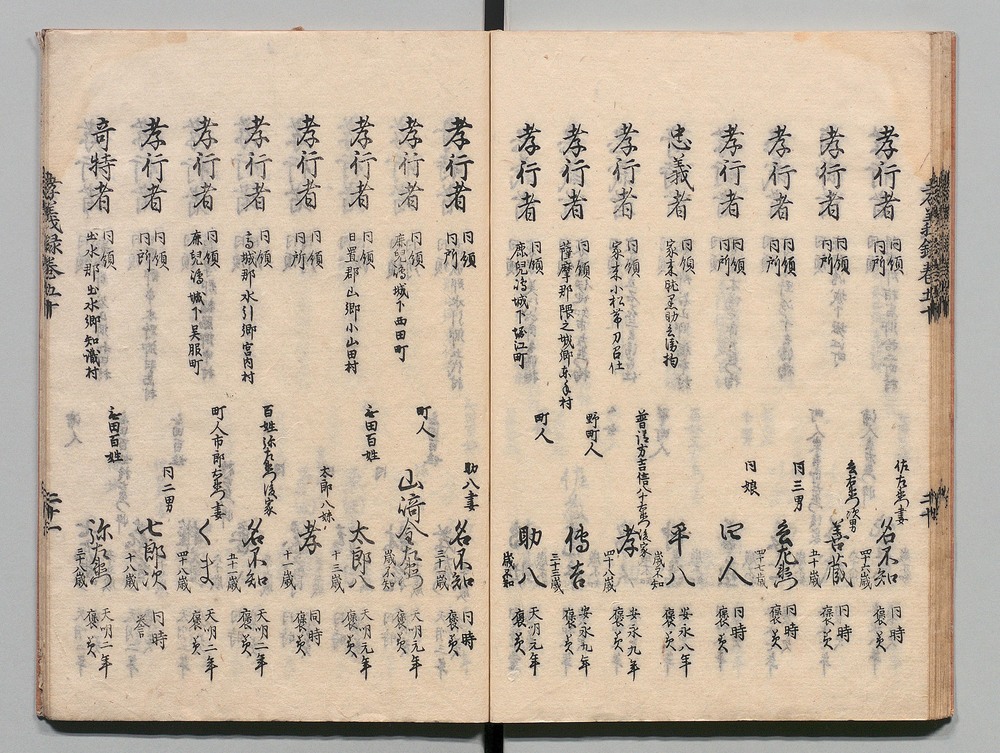 孝義録巻五十
孝行者 同領 同所 佐左衛門妻 名不知 四十歳 同時 褒美
孝行者 同領 同所 玄右衛門次男 善蔵 五十歳 同時 褒美
孝行者 同領 同所 同三男 四十七歳 同時 褒美
孝行者 同領 同所 同娘 同人 同時 褒美
忠義者 同領 家来 平八 歳不知 安永八年 褒美
孝行者 同領 家来小松帯刀召仕 後家 孝 四十八歳 安永九年 褒美
孝行者 同領 薩摩郡隈之城郷東手村 野町人 傳吉 三十三歳 安永九年 褒美
孝行者 同領 鹿児嶋城下堀江町 町人 助八 歳不知 天明元年 褒美
孝行者 同領 同所 助八妻 名不知 三十歳 同時 褒美
孝行者 同領 鹿児嶋城下西田町 町人 山崎金左衛門 歳不知 天明元年 褒美
孝行者 同領 日置郡山郷小山田村 無田百姓 太郎八 十三歳 天明元年 褒美
孝行者 同領 同所 太郎八妹 孝 十一歳 同時 褒美
孝行者 同領 高城郡水引郷宮内村 百姓弥左衛門後家 名不知 五十一歳 天明二年 褒美
孝行者 同領 鹿児嶋城下呉服町 町人市郎右衛門妻 くま 四十八歳 天明二年 褒美
孝行者 同領 同所 同二男 七郎次 十八歳 同時 誉
奇特者 同領 出水郡出水郷知識村 無田百姓 弥左衛門 三十八歳 天明二年 褒美
孝義録巻五十
二十一